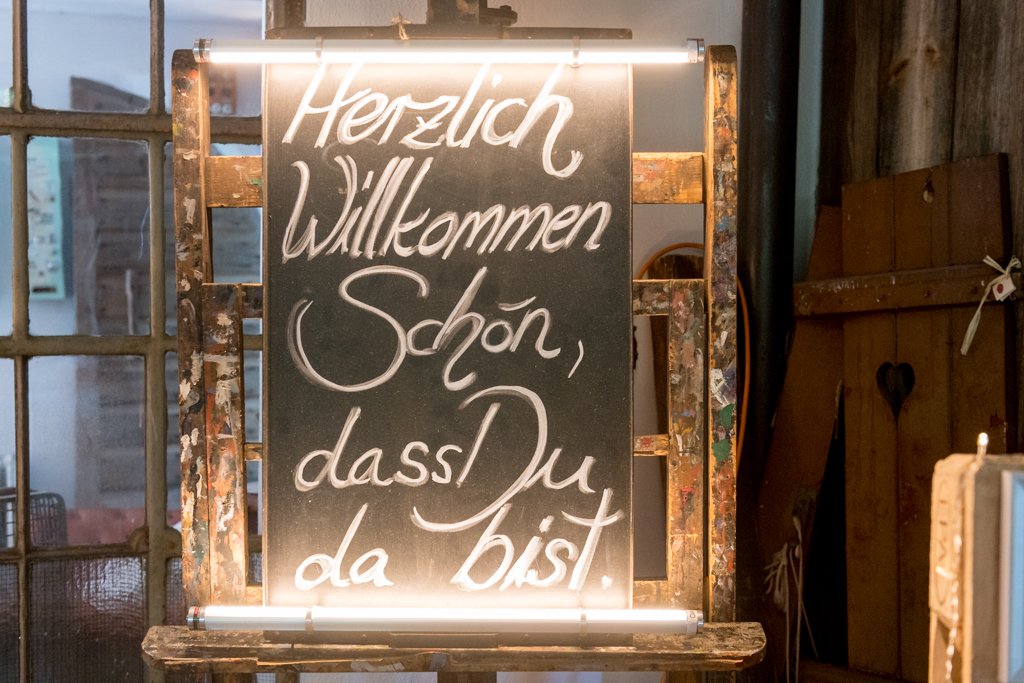 Herzlich
Willkommen
Schön,
dass Du
da bist.